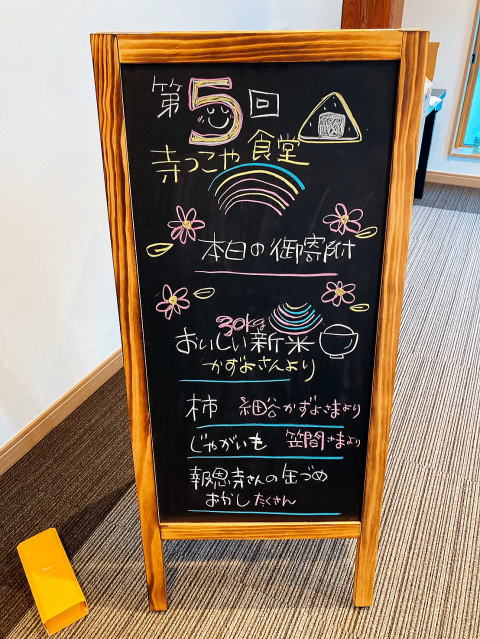 第5回
寺っこや食堂
本日の御寄附
30kg
おいしい新米
かずよさんより
柿 細谷かずよさまより
じゃがいも 笠間さまより
報恩寺さんの缶づめ
おかしたくさん